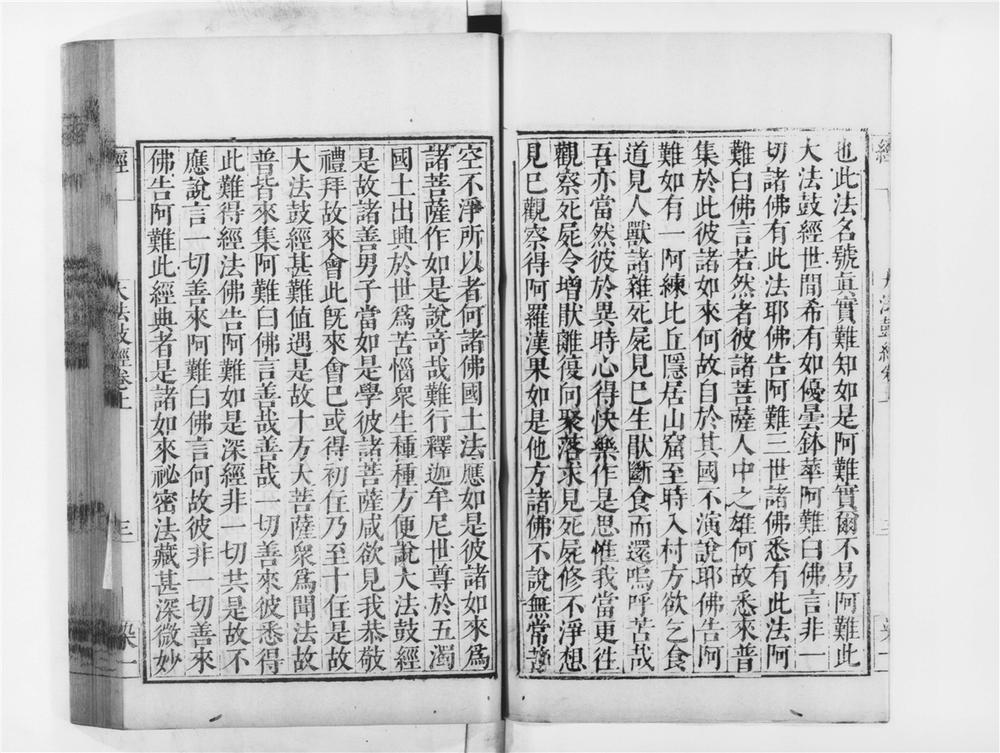 也此法名號真實難知如是阿難實爾不易阿難此
大法鼓經世間希有如優曇鉢華阿難白佛言非一
切諸佛有此法耶佛告阿難三世諸佛悉有此法阿
難白佛言若然者彼諸菩薩人中之雄何故悉來普
集於此彼諸如來何故自於其國不演說耶佛告阿
難如有一阿練比丘隱居山窟至時入村方欲乞食
道見人獸諸雜死屍見已生猒斷食而還嗚呼苦哉
吾亦當然彼於異時心得快樂作是思惟我當更往
觀察死屍令增猒離復向聚落求見死屍修不淨想
見已觀察得阿羅漢果如是他方諸佛不說無常苦
空不淨所以者何諸佛國土法應如是彼諸如來爲
諸菩薩作如是說奇哉難行釋迦牟尼世尊於五濁
國土出興於世爲苦惱衆生種種方便說大法鼓經
是故諸善男子當如是學彼諸菩薩咸欲見我恭敬
禮拜故來會此旣來會已或得初住乃至十住是故
大法鼓經甚難值遇是故十方大菩薩衆爲聞法故
普皆來集阿難白佛言善哉善哉一切善來彼悉得
此難得經法佛告阿難如是深經非一切共是故不
應說言一切善來阿難白佛言何故彼非一切善來
佛告阿難此經典者是諸如來祕密法藏甚深微妙
經一 大法鼓經卷上 三 染一